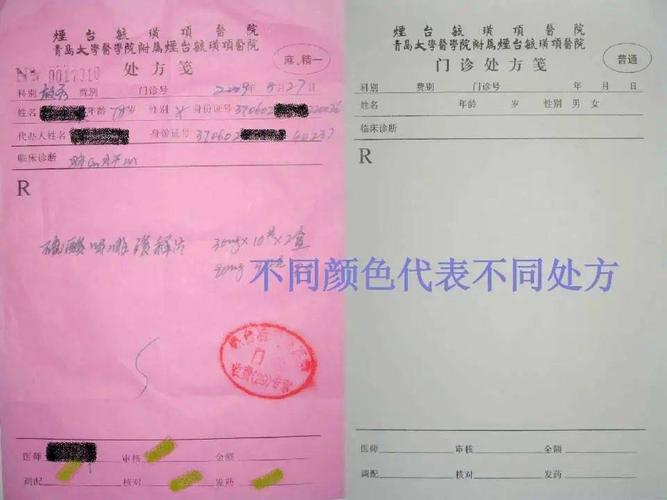 煙台毓璜頂醫院
青島大學醫學院附属煙台毓璜頂醫院
处方笺
麻、精一
No 0017310
科别 费别 门诊号 2009年5月27日
姓名 年龄 岁 性别 女 身份证号 370602
代办人姓名 身份证号 370602
临床诊断
R
硫酸吗啡缓释片 30mg×10片×2盒
门
医师 审核 金额
调配 核对 发药
煙台毓璜頂醫院
青島大學醫學院附属煙台毓璜頂醫院
门诊处方笺
普通
科别 费别 门诊号 年 月 日
姓名 年龄 岁 性别 男 女
临床诊断
R
医师 审核 金额
调配 核对 发药
不同颜色代表不同处方